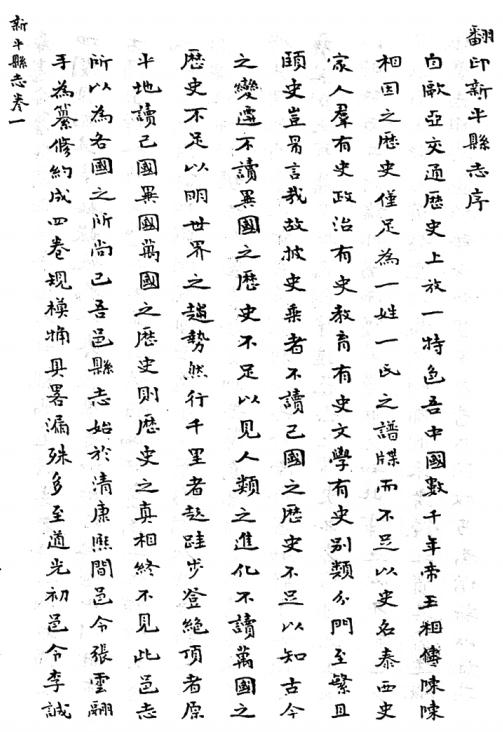 翻印新平縣志序
自歐亞交通歷史上放一特色吾中國數千年帝王相傳陳陳
相因之歷史僅足為一姓一氏之譜牒而不足以史名泰西史
家人羣有史政治有史教育有史文學有史別類分門至繁且
頤史豈易言哉故披史乘者不讀己國之歷史不足以知古今
之變遷不讀異國之歷史不足以見人類之進化不讀萬國之
歷史不足以明世界之趨勢然行千里者起跬步登絕頂者原
平地讀己國異國萬國之歷史則歷史之真相終不見此邑志
所以為各國之所尚已吾邑縣志始於清康熙間邑令張雲翮
手為纂修約成四卷規模犕具畧漏殊多至道光初邑令李誠
新平縣志卷一